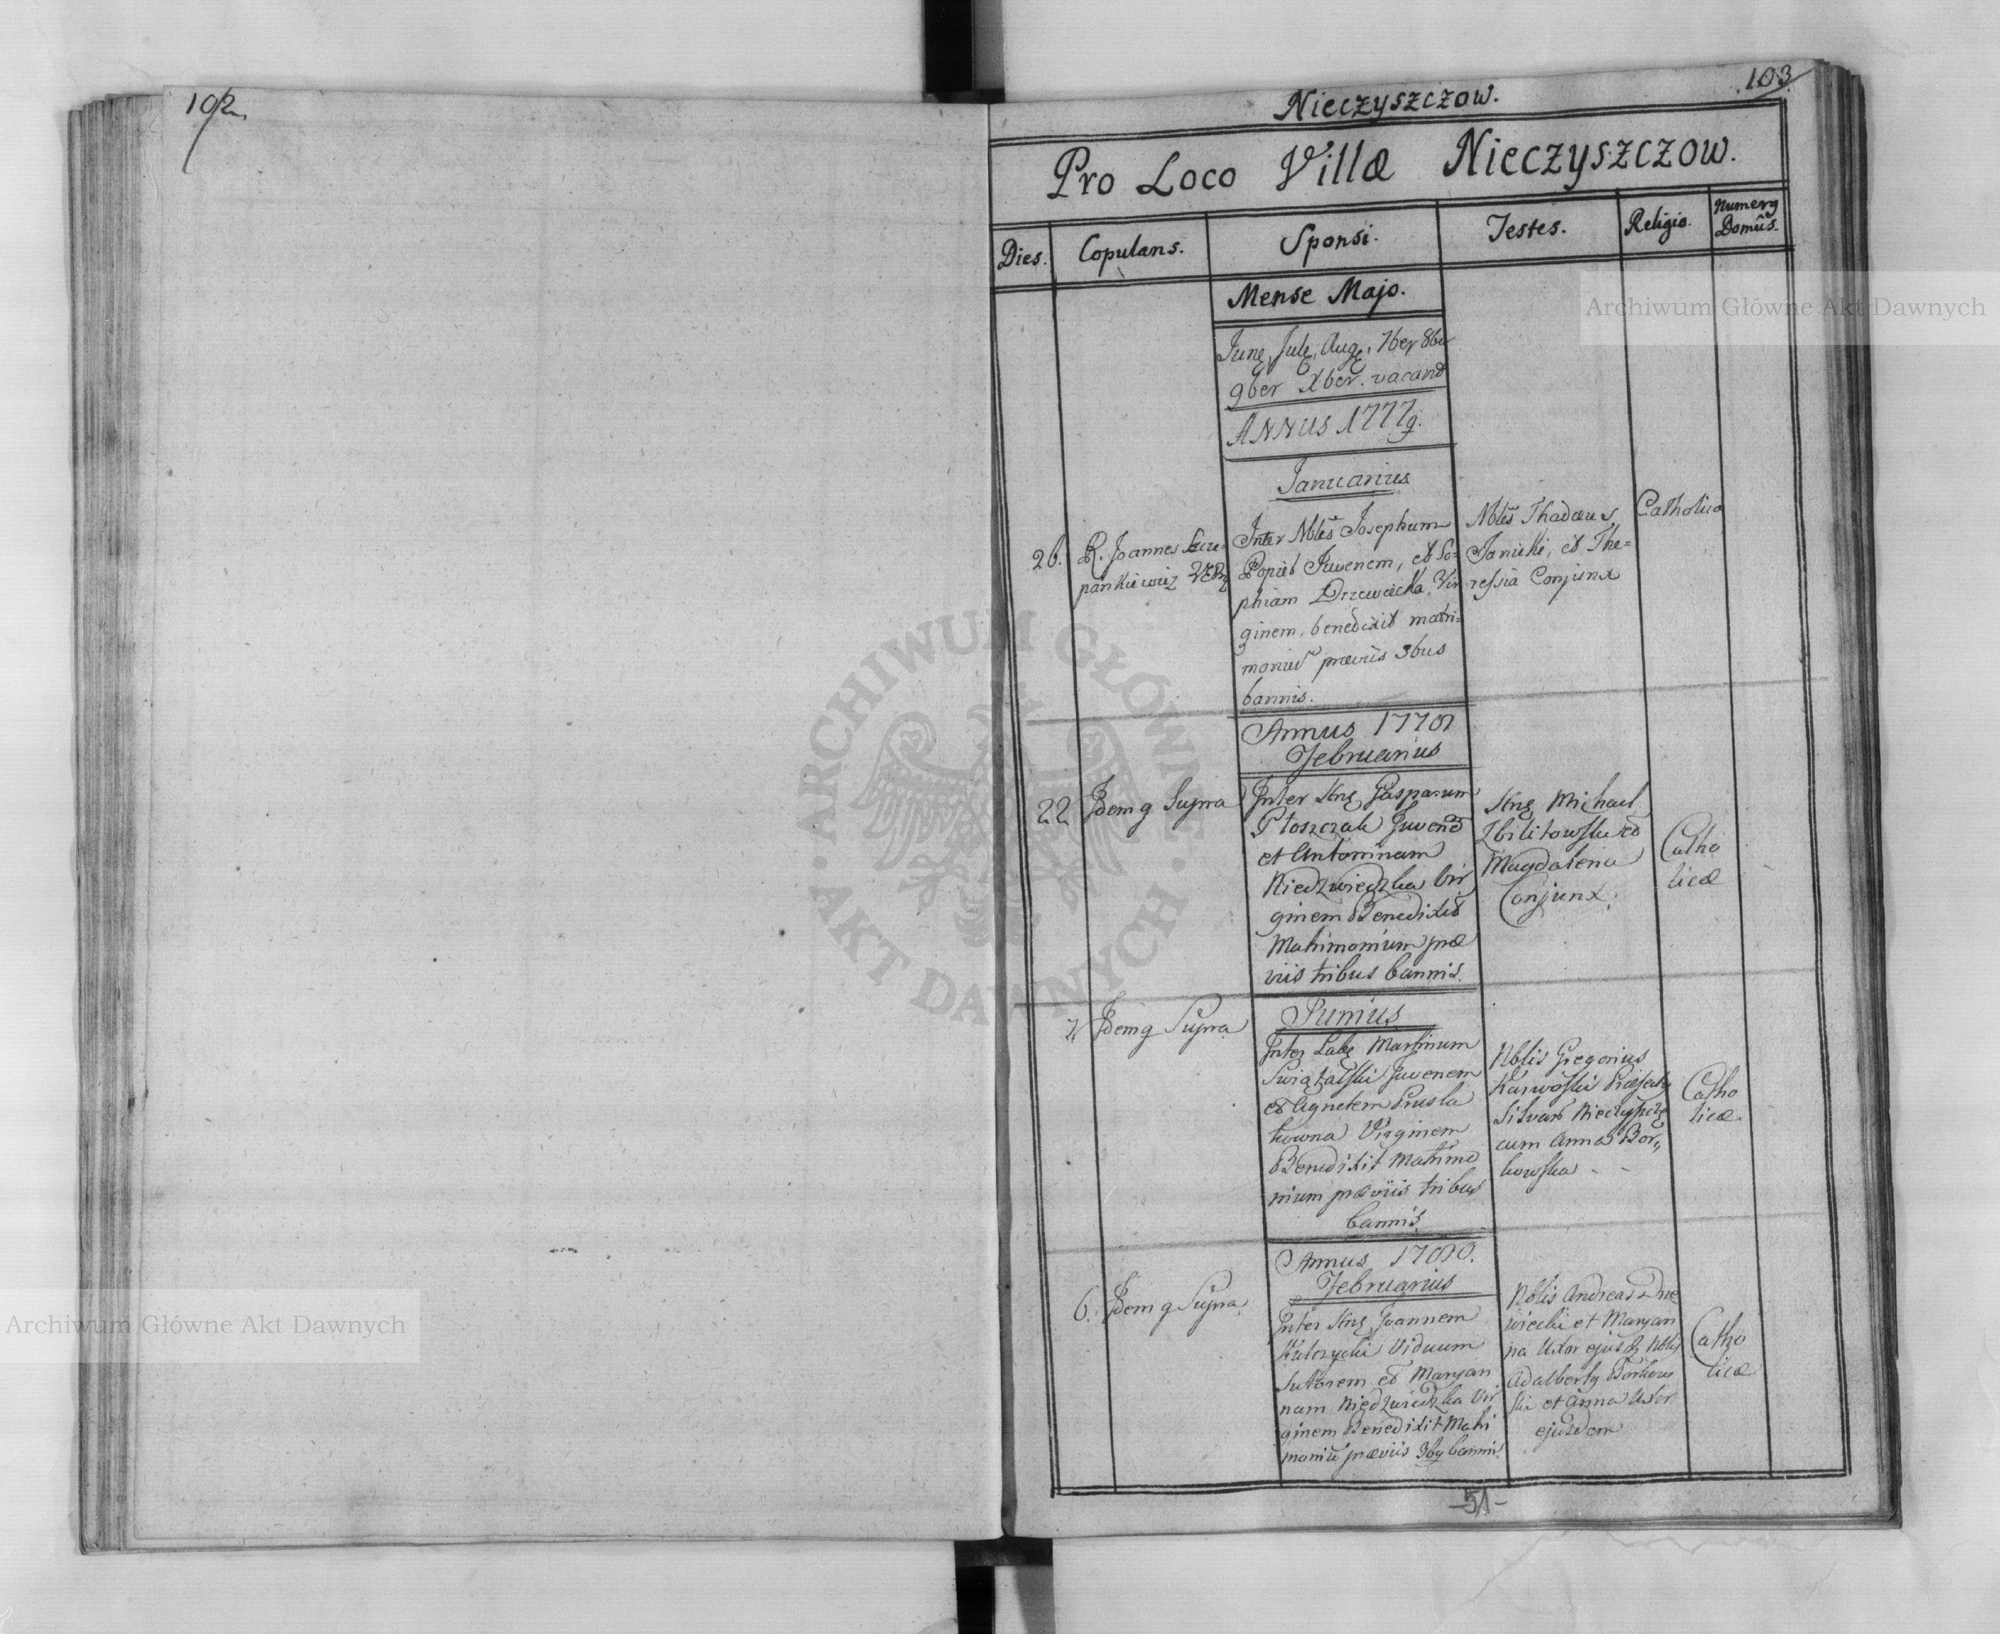 102.
103.
Nieczyszczow.
Pro Loco Villæ Nieczyszczow.
Dies. Copulans. Sponsi. Testes. Religio. Numerq
Domûs.
Mense Majo.
Junę, Julę, Augę, 7ber 8ber
9ber Xber. vacant
ANNUS 1777
Januarius
26.
R. Joannes Szcze=
pankiewicz
Inter Nblēs Josephum
Popiel Juvenem, et So=
phiam Drzewiecka Vir
ginem, benedixit matri=
moniū præviis 3bus
bannis.
Nblēs Thadæus
Janicki, et The=
ressia Conjunx
Catholica
Annus
Februarius
22
Idem q Supra
Inter Gasparum
Ptoszczak Juvenē
et Antoninam
Niedzwiedzka Vir
ginem Benedixit
Matrimonium præ
viis tribus bannis.
Michael
Zbilitowski et
Magdalena
Conjunx.
Catho
licæ
Junius
Idem q Supra
Inter Labę Martinum
Juvenem
et Agnetem Prusla
kowna Virginem
Benedixit Matrimo
nium præviis tribus
bannis.
Nblis Gregorius
Karwoski
cum Anna Bor,,
kowska - -
Catho
licæ.
Annus
Februarius
6.
Idem q Supra.
Inter Joannem
Kulczycki Viduum
Sutorem et Maryan
nam Niedzwiedzka Vir
ginem Benedixit Matri
moniū præviis 3bq bannis.
Nblis Andreas Drze
wiecki et Maryan
na Uxor ejusq Nblis
Adalbertq Borkow
ski et Anna Uxor
ejusdem
Catho
licæ
-51-
Archiwum Główne Akt Dawnych
Archiwum Główne Akt Dawnych
ARCHIWUM GŁÓWNE · AKT DAWNYCH ·